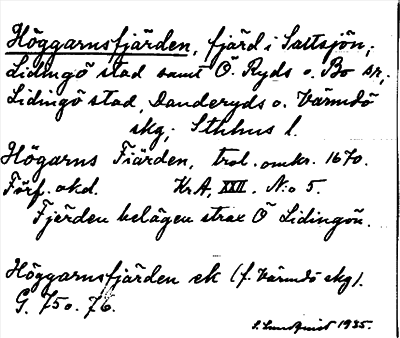 Höggarnsfjärden, fjärd i Saltsjön;
Lidingö stad samt Ö. Ryds o. Bo snr,
Lidingö stad, Danderyds o. Värmdö
skg; Sthlms l.
Högarns Fiärden, trol. omkr. 1670.
Förf. okd. KrA, XXII. N:o 5.
Fjerden belägen strax Ö Lidingön.
Höggarnsfjärden ek (f. Värmdö skg).
G. 75 o. 76.
S. Lundquist 1935.